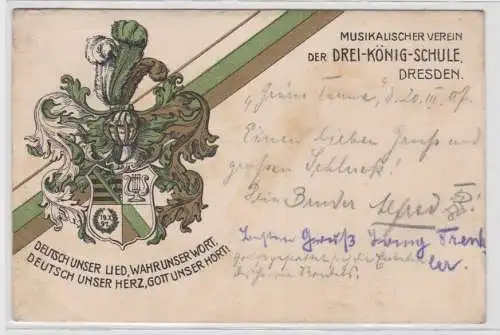 MUSIKALISCHER VEREIN
DER DREI-KÖNIG-SCHULE,
DRESDEN.
„Grüne Tanne", d. 20. III. 07.
Einen lieben Gruß und
großen Schluck!
Dein Bruder Alfred
19.X.
97.
Besten Gruß
DEUTSCH UNSER LIED, WAHR UNSER WORT,
DEUTSCH UNSER HERZ, GOTT UNSER HORT!